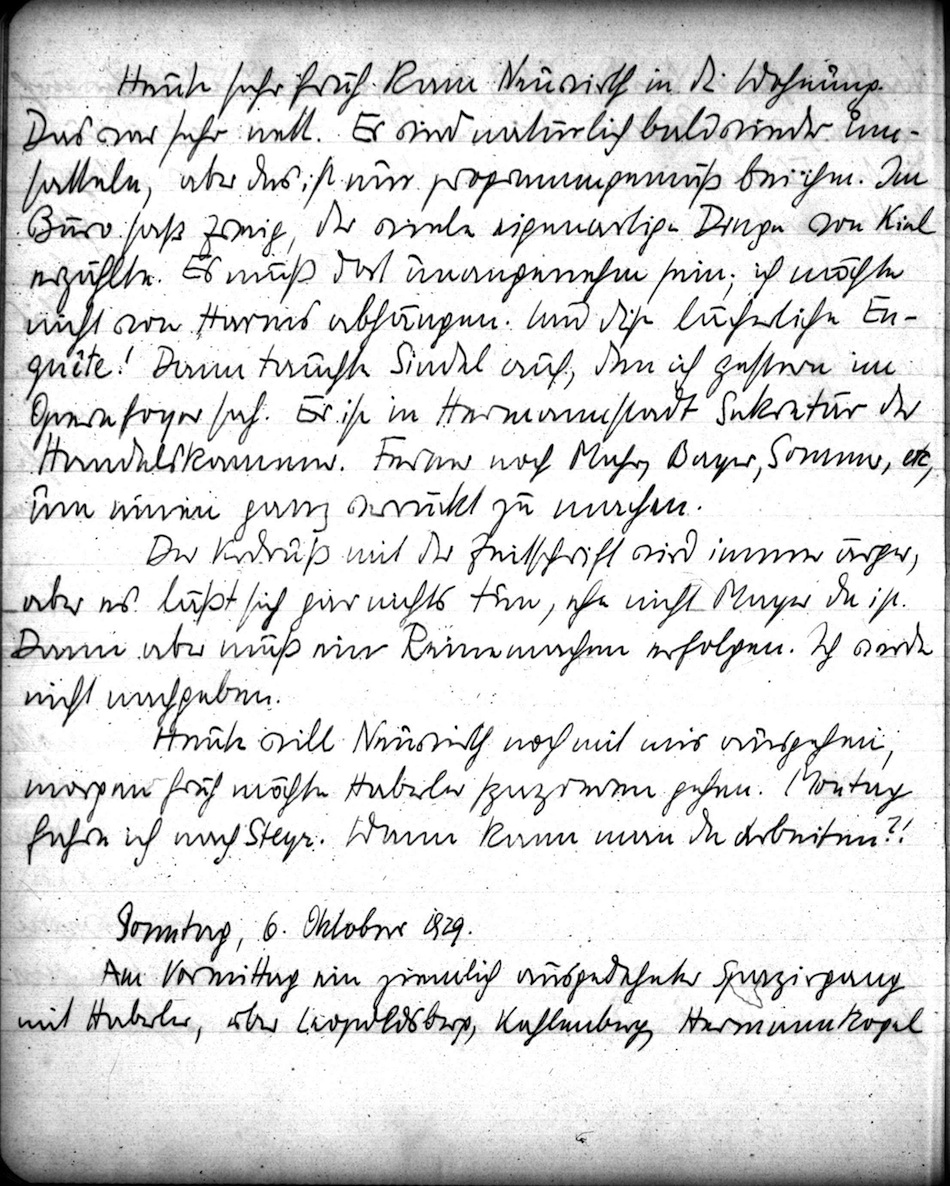 Heute sehr früh kam Neuwirth in die Wohnung.
Das war sehr nett. Er wird natürlich bald wieder um-
satteln, aber das ist nur programmgemäß bei ihm. Im
Büro saß Zweig, der viele eigenartige Dinge von Kiel
erzählte. Es muß dort unangenehm sein; ich möchte
nicht von Harms abhängen. Und diese lächerliche En-
quête! Dann tauchte Sindel auf, den ich gestern im
Opernfoyer sah. Er ist in Hermannstadt Sekretär der
Handelskammer. Ferner noch Mahr, Bayer, Sommer, etc,
um einen ganz verrückt zu machen.
Der Verdruß mit der Zeitschrift wird immer ärger,
aber es läßt sich gar nichts tun, ehe nicht Mayer da ist.
Dann aber muß ein Reinemachen erfolgen. Ich werde
nicht nachgeben.
Heute will Neuwirth noch mit mir ausgehen,
morgen früh möchte Haberler spazieren gehen. Montag
fahre ich nach Steyr. Wann kann man da arbeiten?!
Sonntag, 6. Oktober 1929.
Am Vormittag ein ziemlich ausgedehnter Spaziergang
mit Haberler, über Leopoldsberg, Kahlenberg, Hermannkogel